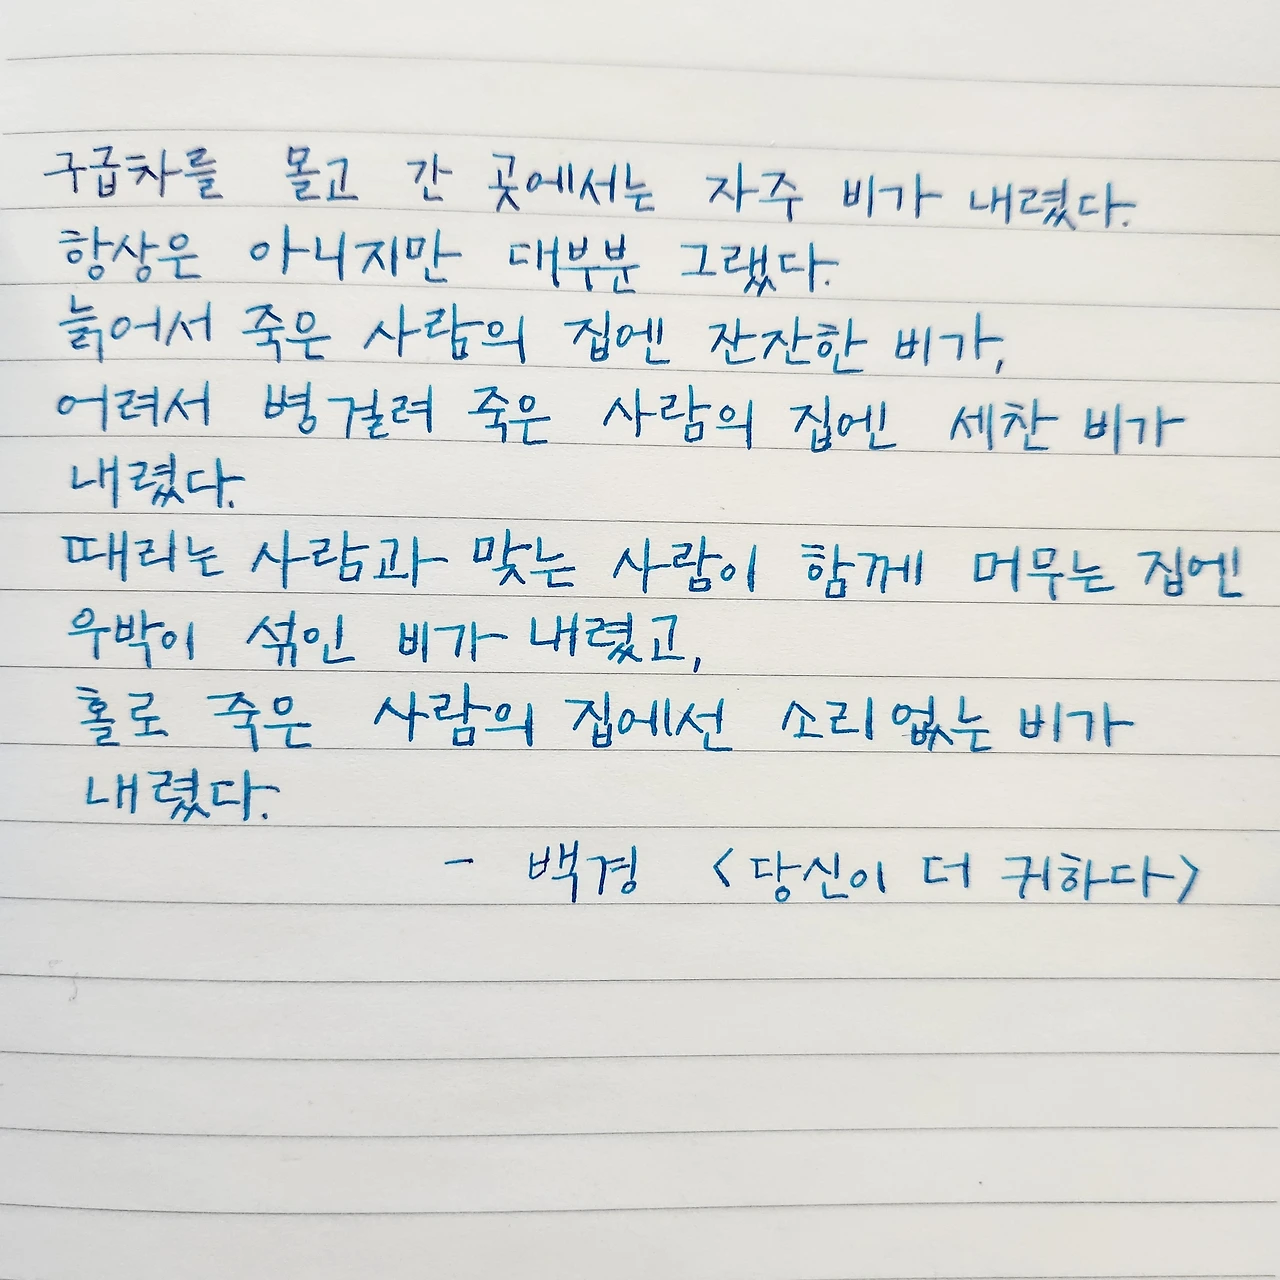 구급차를 몰고 간 곳에서는 자주 비가 내렸다.
항상은 아니지만 대부분 그랬다.
늙어서 죽은 사람의 집엔 잔잔한 비가,
어려서 병걸려 죽은 사람의 집엔 세찬 비가
내렸다.
때리는 사람과 맞는 사람이 함께 머무는 집엔
우박이 섞인 비가 내렸고,
홀로 죽은 사람의 집에선 소리없는 비가
내렸다.
- 백경 <당신이 더 귀하다>